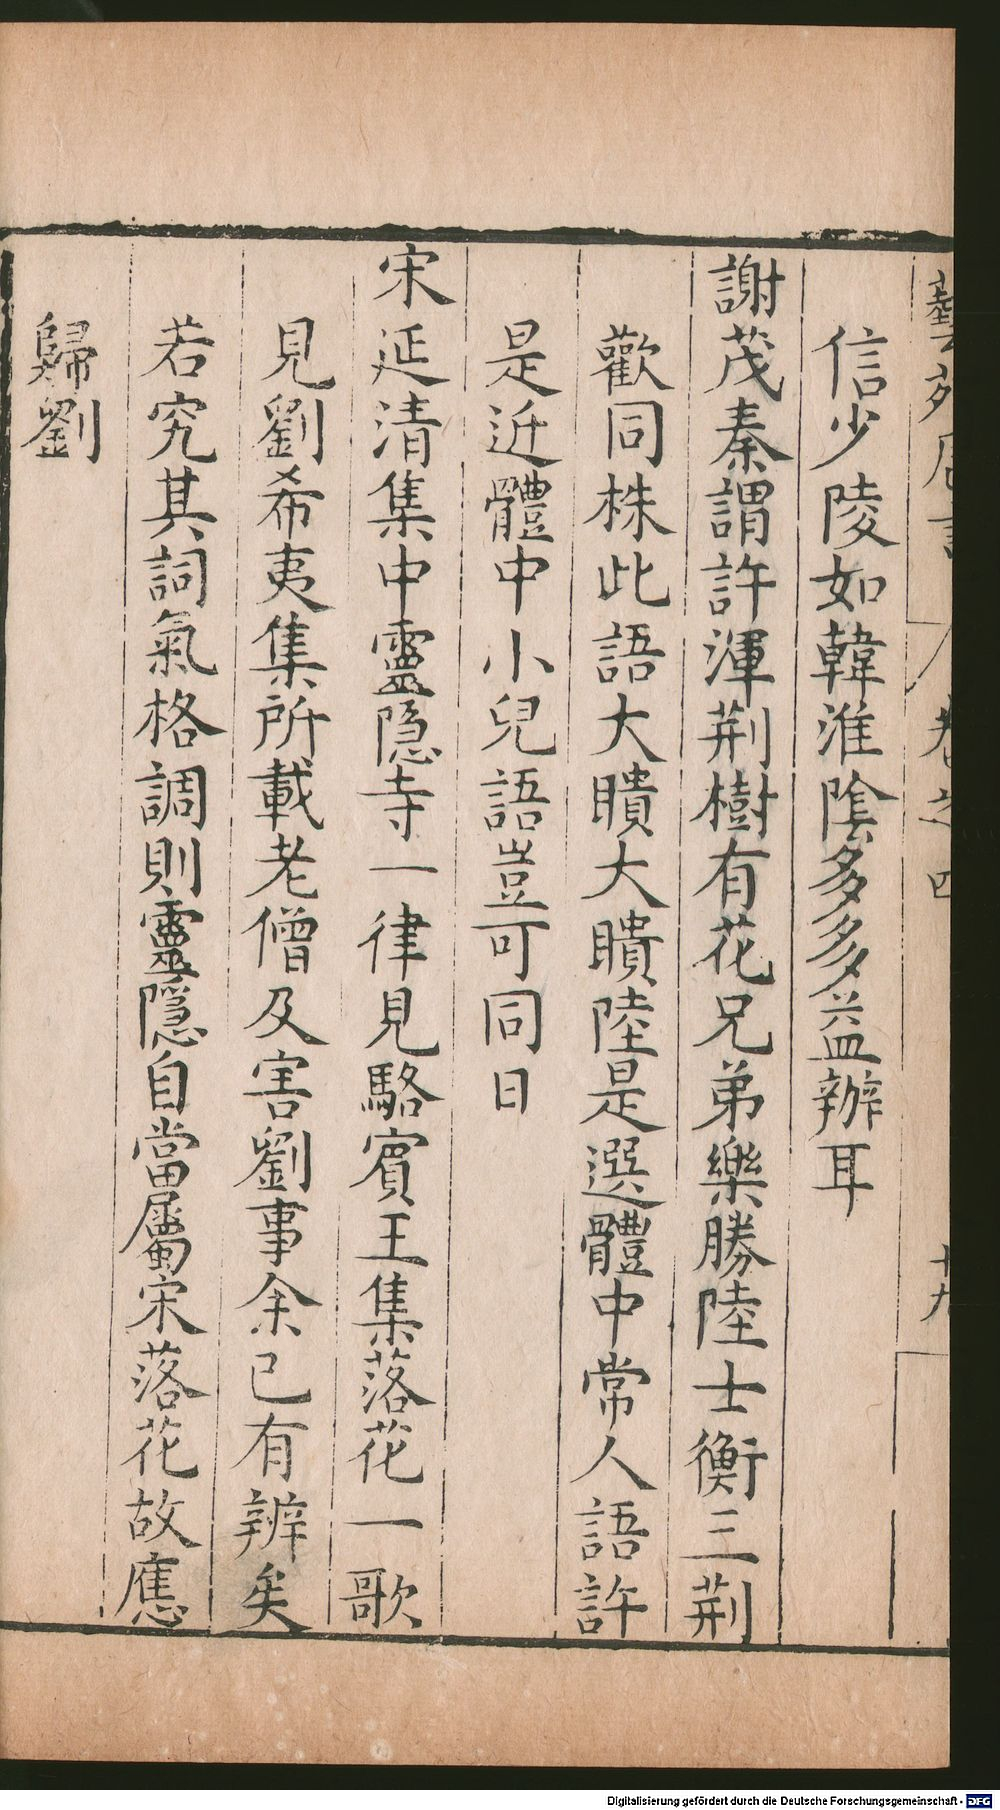 藝苑巵言 卷之四 十九
信少陵如韓淮陰多多益辦耳
謝茂秦謂許渾荆樹有花兄弟樂勝陸士衡三荆
歡同株此語大瞶大瞶陸是選體中常人語許
是近體中小兒語豈可同日
宋延清集中靈隐寺一律見駱賓王集落花一歌
見劉希夷集所載老僧及害劉事余已有辨矣
若究其詞氣格調則靈隱自當屬宋落花故應
歸劉
Digitalisierung gefördert durch die Deutsche Forschungsgemeinschaft - DFG